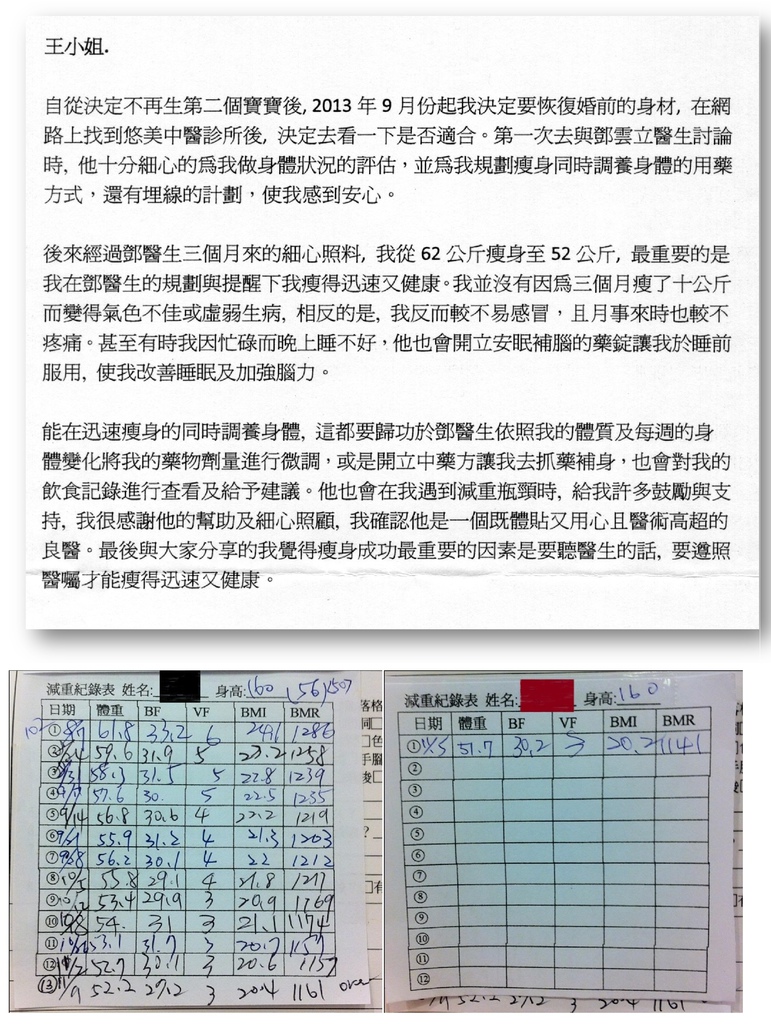 王小姐.
自從決定不再生第二個寶寶後, 2013 年 9 月份起我決定要恢復婚前的身材, 在網
路上找到悠美中醫診所後, 決定去看一下是否適合。第一次去與鄧雲立醫生討論
時, 他十分細心的為我做身體狀況的評估，並為我規劃瘦身同時調養身體的用藥
方式，還有埋線的計劃，使我感到安心。
後來經過鄧醫生三個月來的細心照料, 我從 62 公斤瘦身至 52 公斤, 最重要的是
我在鄧醫生的規劃與提醒下我瘦得迅速又健康。我並沒有因為三個月瘦了十公斤
而變得氣色不佳或虛弱生病, 相反的是, 我反而較不易感冒，且月事來時也較不
疼痛。甚至有時我因忙碌而晚上睡不好，他也會開立安眠補腦的藥錠讓我於睡前
服用, 使我改善睡眠及加強腦力。
能在迅速瘦身的同時調養身體, 這都要歸功於鄧醫生依照我的體質及每週的身
體變化將我的藥物劑量進行微調，或是開立中藥方讓我去抓藥補身，也會對我的
飲食記錄進行查看及給予建議。他也會在我遇到減重瓶頸時, 給我許多鼓勵與支
持, 我很感謝他的幫助及細心照顧, 我確認他是一個既體貼又用心且醫術高超的
良醫。最後與大家分享的我覺得瘦身成功最重要的因素是要聽醫生的話, 要遵照
醫囑才能瘦得迅速又健康。
減重紀錄表 姓名: 身高:160 (56)
日期 體重 BF VF BMI BMR
① 8/7 61.8 33.2 6 24.1 1286
② 59.6 31.9 5 23.2 1258
③ 58.3 31.5 5 22.8 1239
④ 57.6 30. 5 22.5 1235
⑤ 9/14 56.8 30.6 4 22.2 1219
⑥ 55.9 31.2 4 21.3 1203
⑦ 56.2 30.1 4 22 1212
⑧ 55.8 29.1 4 21.8
⑨ 53.4 29.9 3 20.9 1169
⑩ 54. 31 3 21.1 1174
⑪ 53.1 31.7 3 20.7 1157
⑫ 52.7 30.1 3 20.6 1157
⑬ 52.2 27.2 3 20.4 1161 over
減重紀錄表 姓名: 身高:160
日期 體重 BF VF BMI BMR
① 51.7 30.2 3 20.2 1141
②
③
④
⑤
⑥
⑦
⑧
⑨
⑩
⑪
⑫
52.2 27.2 3 20.4 1161